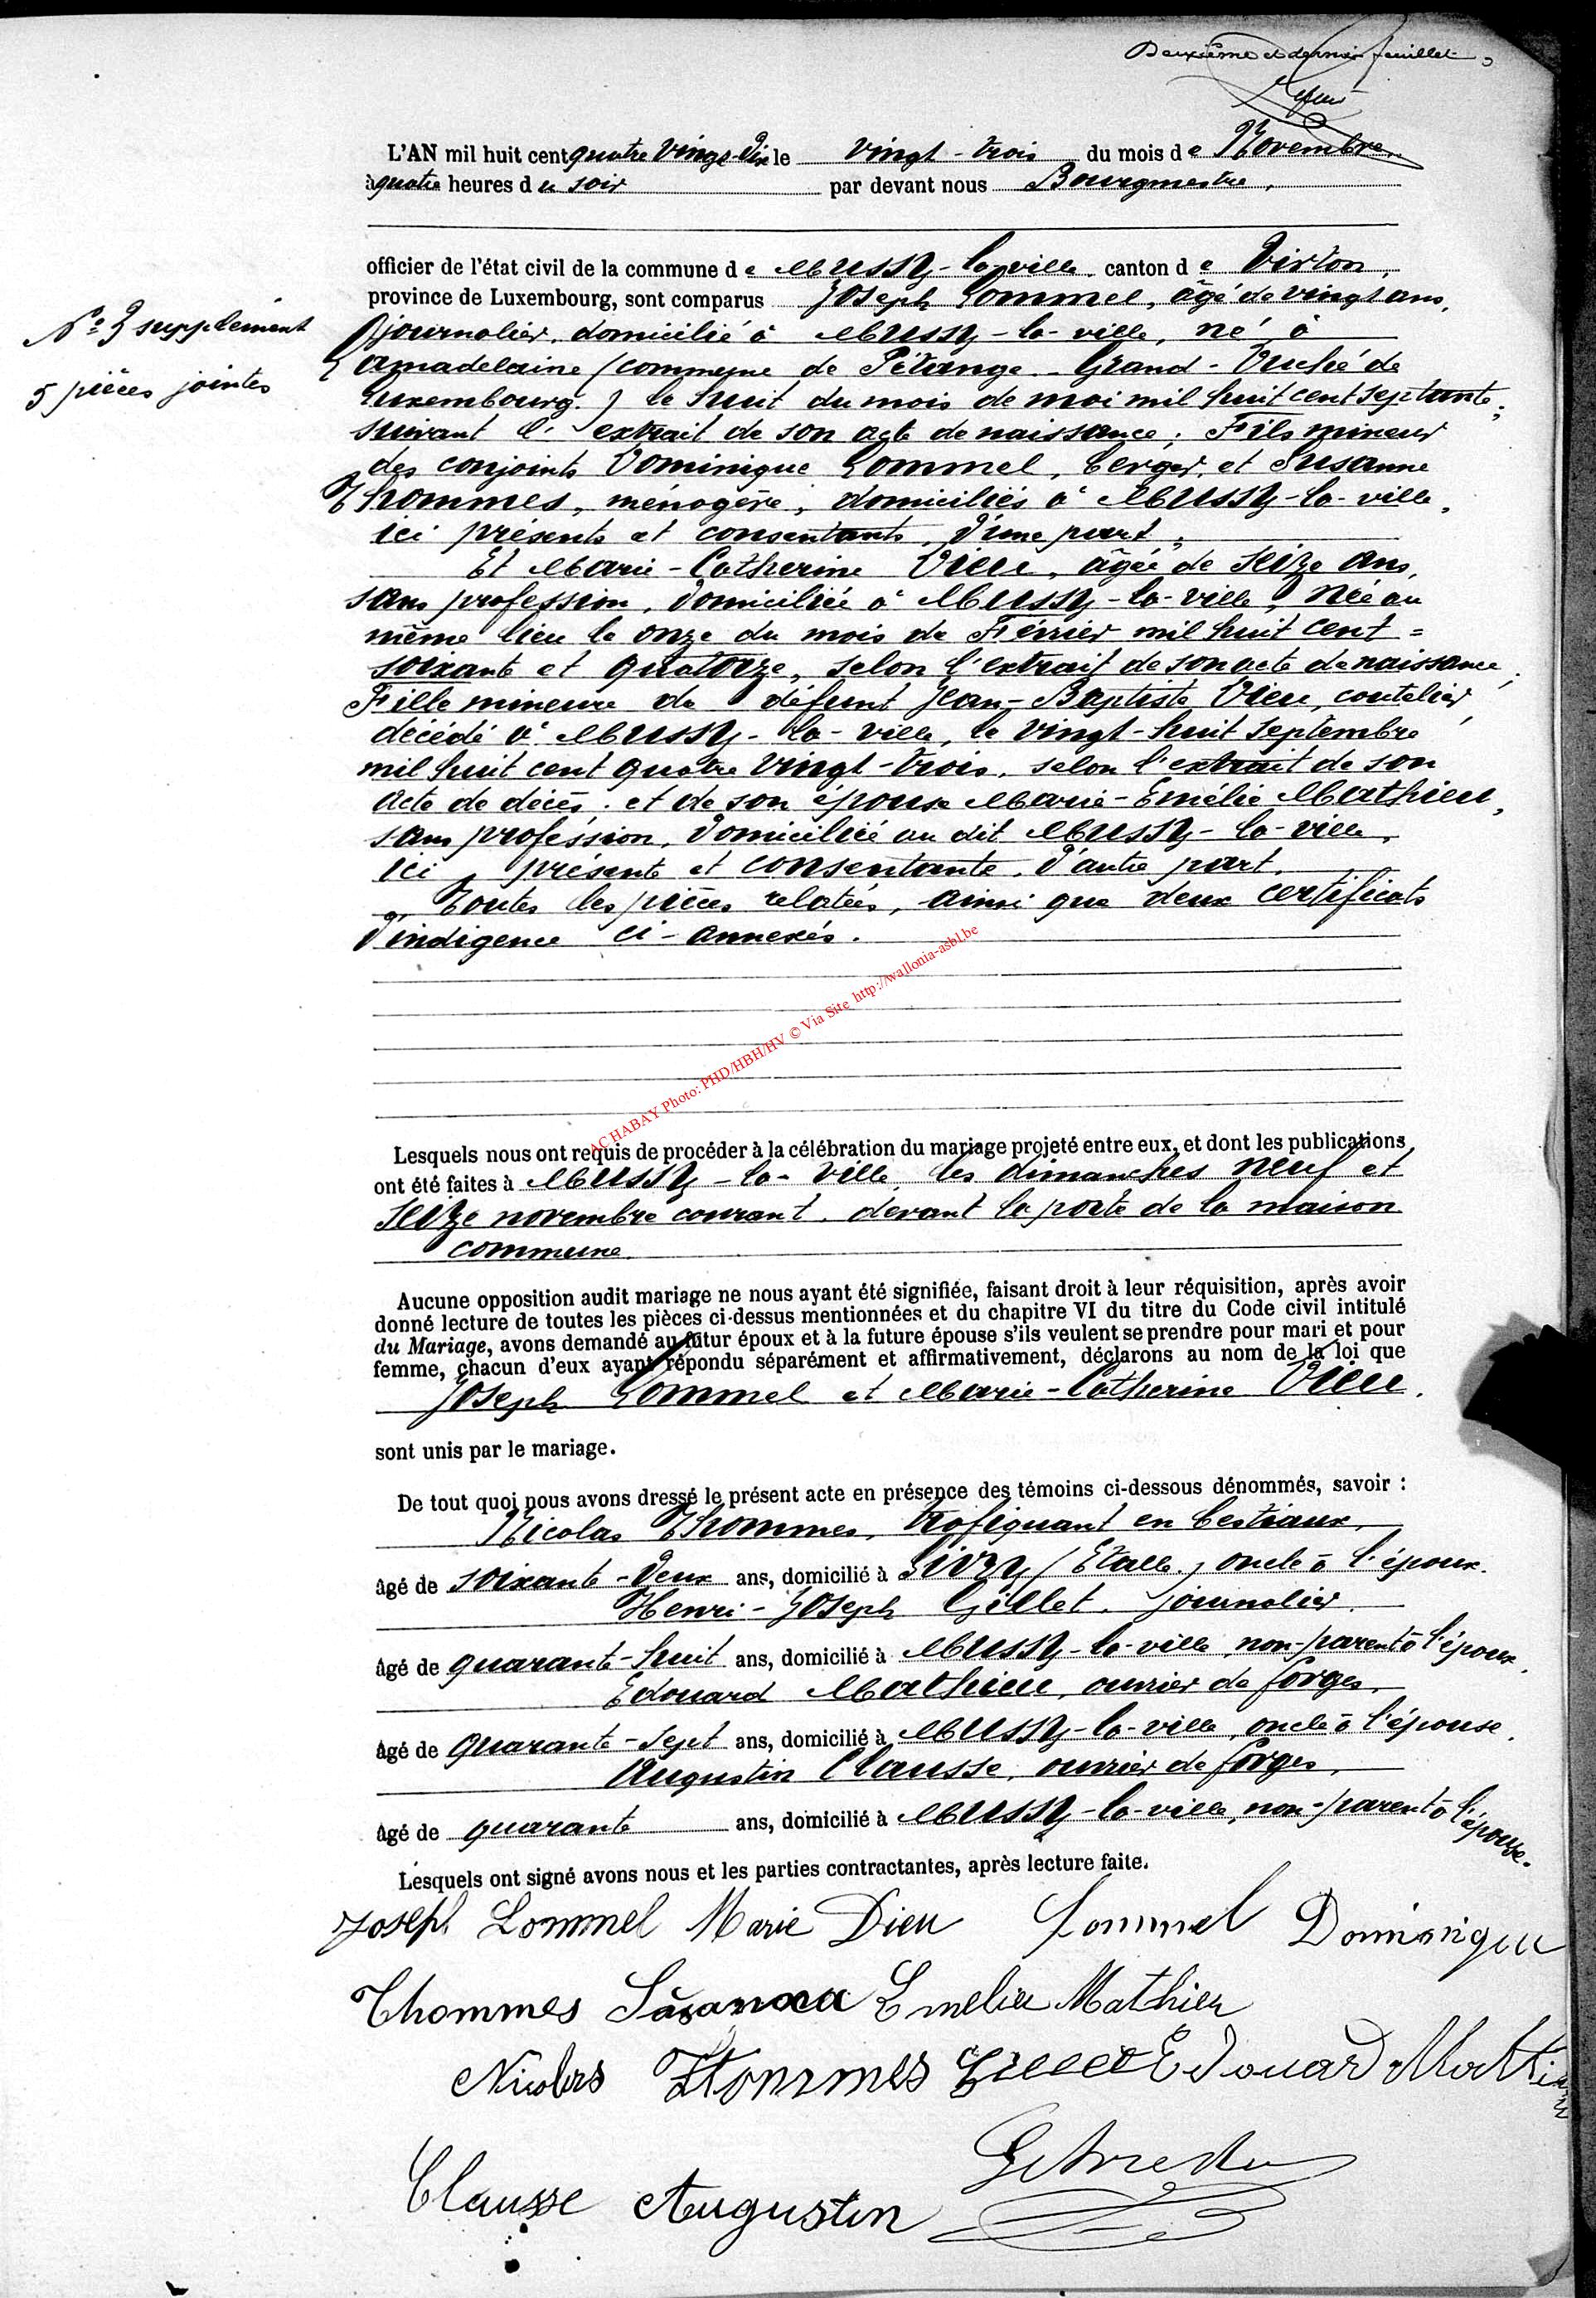 Deuxième et dernier feuillet
L'AN mil huit cent quatre vingt-dix le vingt-trois du mois de Novembre
à quatre heures du soir par devant nous Bourgmestre,
officier de l'état civil de la commune de Mussy-la-ville, canton de Virton,
province de Luxembourg, sont comparus Joseph Lommel, âgé de vingt ans,
N° 3 supplément
journalier, domicilié à Mussy-la-ville, né à
5 pièces jointes
Lamadelaine (commune de Pétange - Grand-Duché de
Luxembourg.) le huit du mois de mai mil huit cent septante,
suivant l'extrait de son acte de naissance; Fils mineur
des conjoints Dominique Lommel, berger, et Susanne
Thommes, ménagère, domiciliés à Mussy-la-ville,
ici présents et consentants, d'une part,
Et Marie-Catherine Dieu, âgée de seize ans,
sans profession, domiciliée à Mussy-la-ville, née au
même lieu le onze du mois de Février mil huit cent =
soixante et quatorze, selon l'extrait de son acte de naissance;
Fille mineure de défunt Jean-Baptiste Dieu, coutelier,
décédé à Mussy-la-ville, le vingt-huit septembre
mil huit cent quatre vingt-trois, selon l'extrait de son
acte de décès, et de son épouse Marie-Emélie Mathieu,
sans profession, domiciliée au dit Mussy-la-ville,
ici présente et consentante, d'autre part.
Toutes les pièces relatées, ainsi que deux certificats
d'indigence ci-annexés.
AC HABAY Photo: PHD/HBH/HV © Via Site http://wallonia-asbl.be
Lesquels nous ont requis de procéder à la célébration du mariage projeté entre eux, et dont les publications
ont été faites à Mussy-la-ville, les dimanches neuf et
seize novembre courant, devant la porte de la maison
commune.
Aucune opposition audit mariage ne nous ayant été signifiée, faisant droit à leur réquisition, après avoir
donné lecture de toutes les pièces ci-dessus mentionnées et du chapitre VI du titre du Code civil intitulé
du Mariage, avons demandé au futur époux et à la future épouse s'ils veulent se prendre pour mari et pour
femme, chacun d'eux ayant répondu séparément et affirmativement, déclarons au nom de la loi que
Joseph Lommel et Marie-Catherine Dieu,
sont unis par le mariage.
De tout quoi nous avons dressé le présent acte en présence des témoins ci-dessous dénommés, savoir :
Nicolas Thommes, trafiquant en bestiaux,
âgé de soixante-deux ans, domicilié à Sivry (Etalle,) oncle à l'époux.
Henri-Joseph Gillet, journalier,
âgé de quarante-huit ans, domicilié à Mussy-la-ville, non-parent à l'époux,
Edouard Mathieu, ouvrier de forges,
âgé de quarante-sept ans, domicilié à Mussy-la-ville, oncle à l'épouse,
Augustin Clausse, ouvrier de forges,
âgé de quarante ans, domicilié à Mussy-la-ville, non-parent à l'épouse.
Lesquels ont signé avons nous et les parties contractantes, après lecture faite.
Joseph Lommel Marie Dieu Lommel Dominique
Thommes Susanna Emelie Mathieu
Nicolas Thommes Gillet Edouard Mathieu
Clausse Augustin